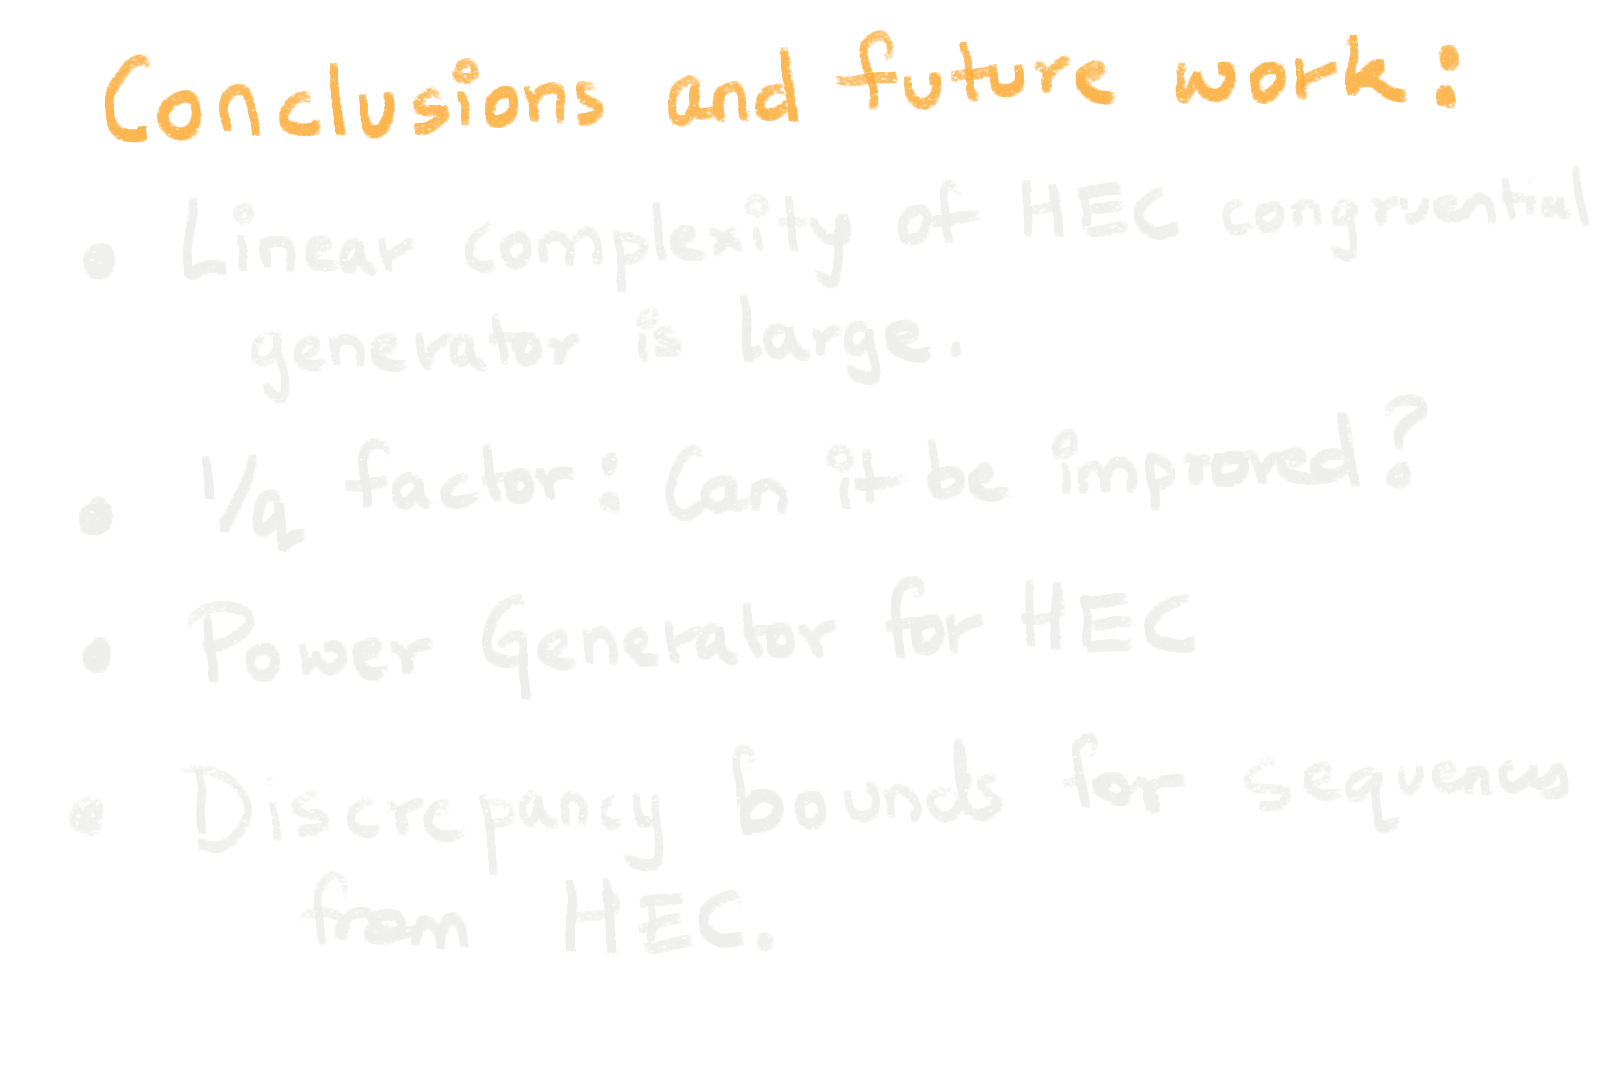 Conclusions and future work:
• Linear complexity of HEC congruential
generator is large.
• 1/q factor: Can it be improved?
• Power Generator for HEC
• Discrepancy bounds for sequences
from HEC.